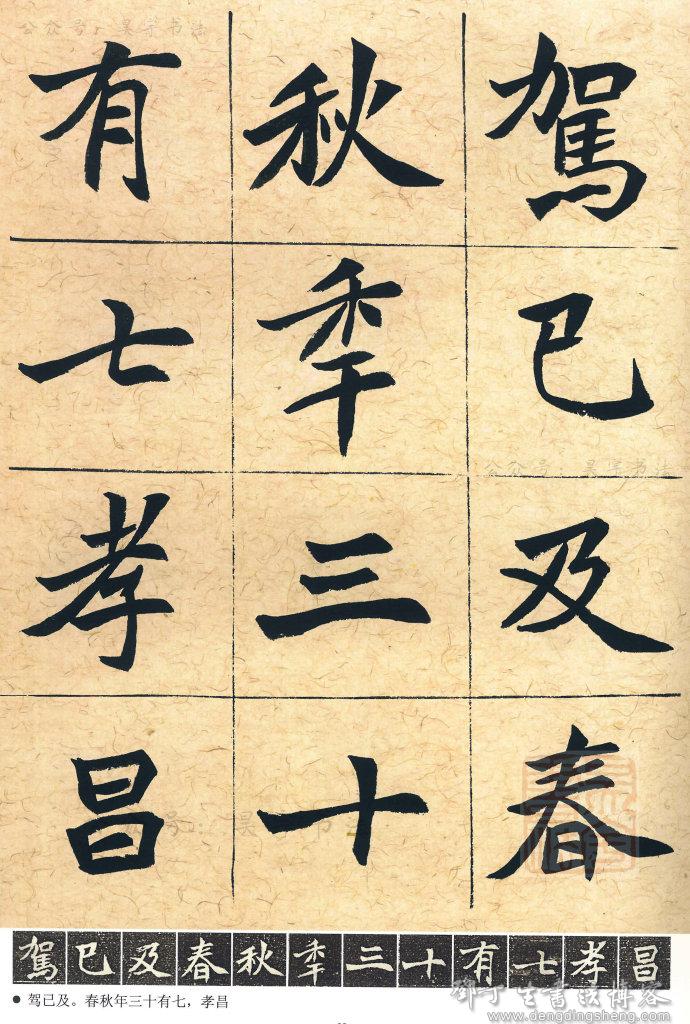 公众号：吴荣书法
駕已及春
秋秊三十
有七孝昌
公众号：吴荣书法
駕已及春秋秊三十有七孝昌
● 驾已及。春秋年三十有七，孝昌
邓丁生书法博客
www.dengdingsheng.com